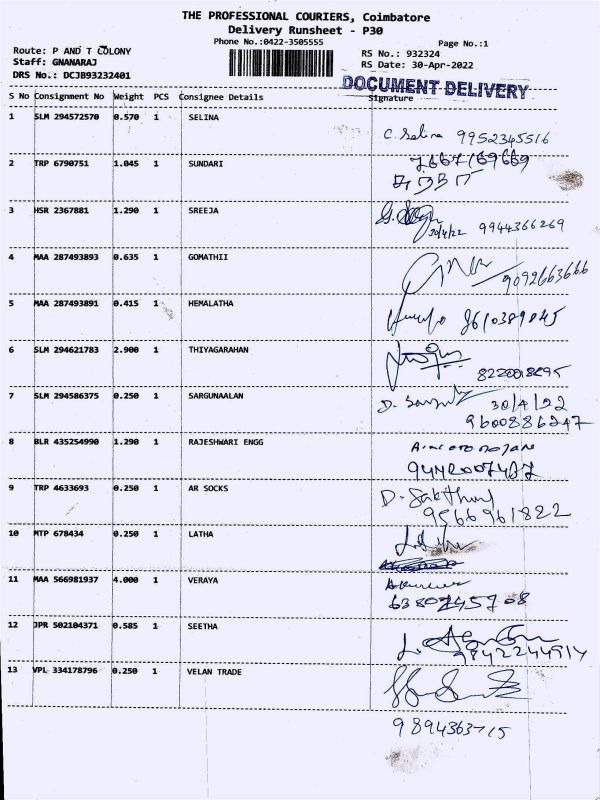 THE PROFESSIONAL COURIERS, Coimbatore
Delivery Runsheet - P30
Phone No.:0422-3505555
Page No.:1
Route: P AND T COLONY
RS No.: 932324
Staff: GNANARAJ
RS Date: 30-Apr-2022
DRS No.: DCJB93232401
DOCUMENT DELIVERY
S No Consignment No Weight PCS Consignee Details Signature
1 SLM 294572570 0.570 1 SELINA
C. Selina 9952345516
2 TRP 6790751 1.045 1 SUNDARI
3 HSR 2367881 1.290 1 SREEJA
30/4/22 9944366269
4 MAA 287493893 0.635 1 GOMATHII
9092663666
5 MAA 287493891 0.415 1 HEMALATHA
6 SLM 294621783 2.900 1 THIYAGARAHAN
7 SLM 294586375 0.250 1 SARGUNAALAN
30/4/22
9600886247
8 BLR 435254990 1.290 1 RAJESHWARI ENGG
9 TRP 4633693 0.250 1 AR SOCKS
9566961822
10 MTP 678434 0.250 1 LATHA
11 MAA 566981937 4.000 1 VERAYA
12 JPR 502104371 0.585 1 SEETHA
9842244914
13 VPL 334178796 0.250 1 VELAN TRADE
9894363715